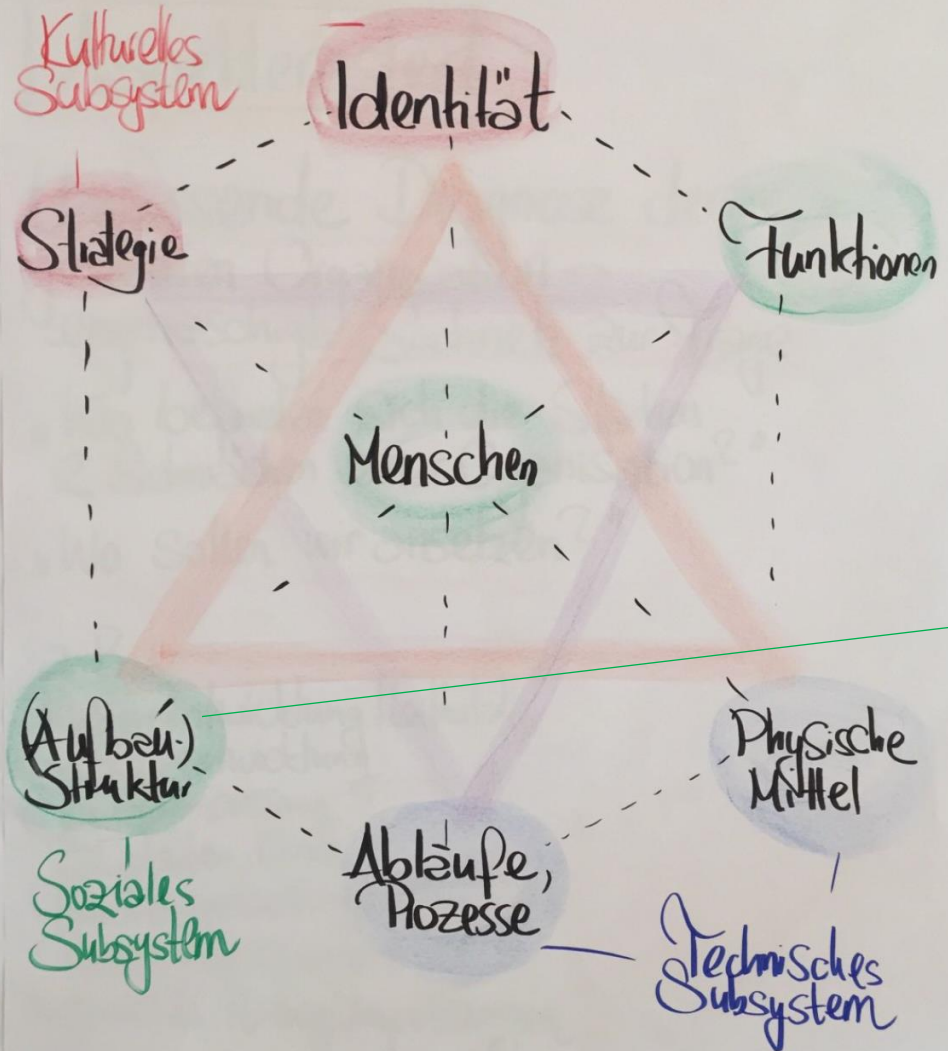 Kulturelles
Subsystem
Identität
Strategie
Funktionen
Menschen
(Aufbau-)
Struktur
Physische
Mittel
Abläufe,
Prozesse
Soziales
Subsystem
Technisches
Subsystem